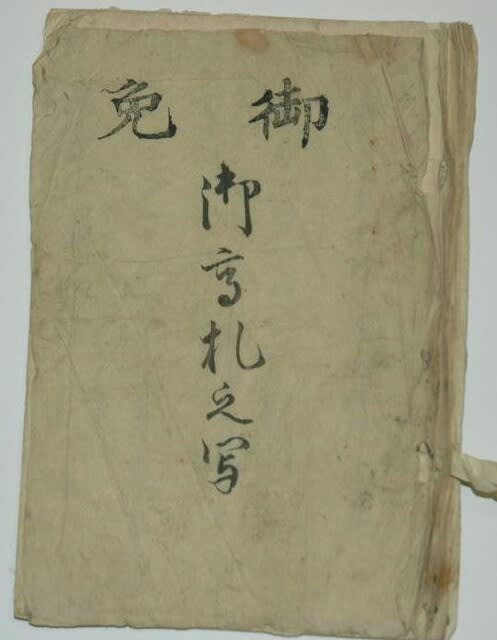 御免
御高札之写